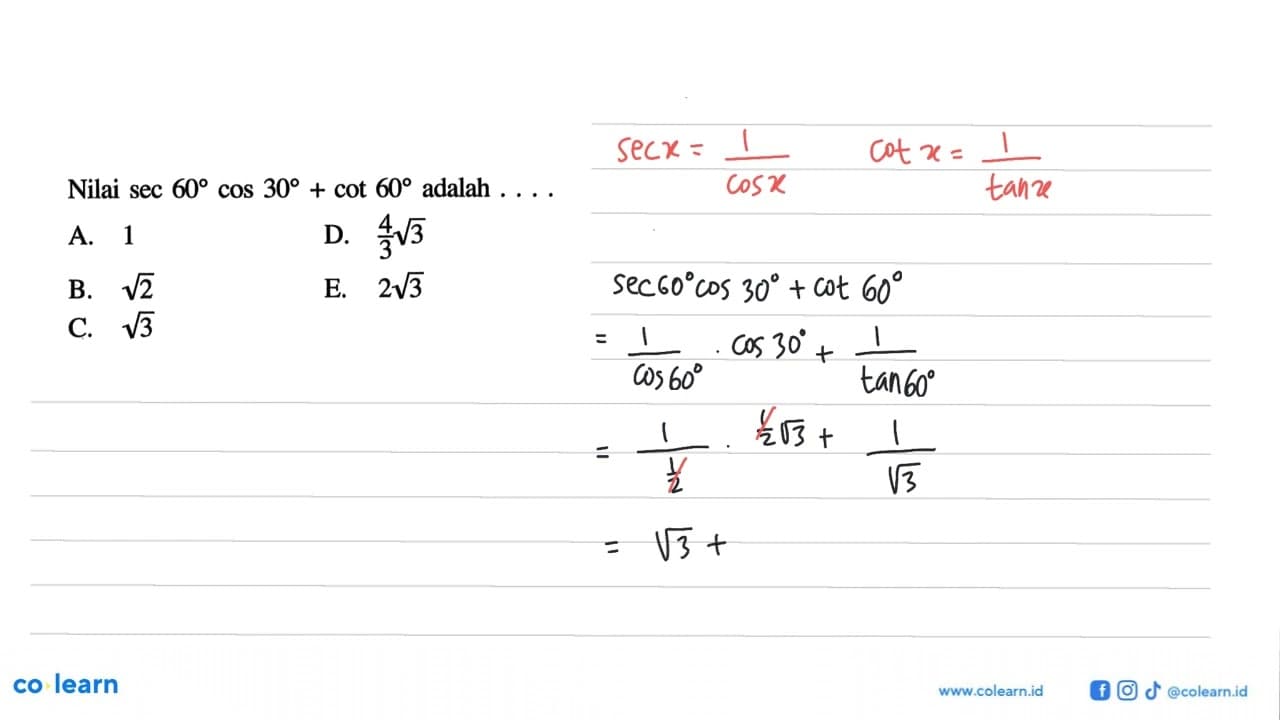 Nilai sec 60° cos 30° + cot 60° adalah . . . .
A. 1
B. √2
C. √3
D. 4/3 √3
E. 2√3
sec x = 1/cos x
cot x = 1/tan x
sec 60° cos 30° + cot 60°
= 1/cos 60° . cos 30° + 1/tan 60°
= 1/(1/2) . 1/2 √3 + 1/√3
= √3 +
co learn
www.colearn.id
@colearn.id